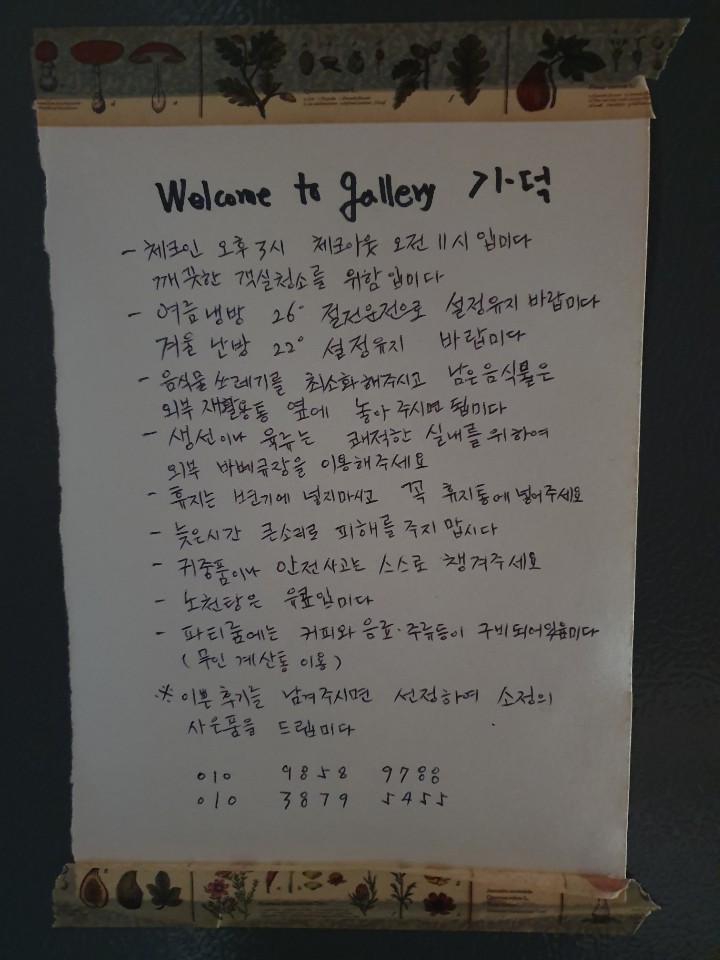 Welcome to gallery 가덕
- 체크인 오후 3시 체크아웃 오전 11시 입미다
깨끗한 객실청소를 위함 입미다
- 여름냉방 26° 절전운전으로 설정유지 바랍미다
겨울 난방 22° 설정유지 바랍미다
- 음식물 쓰레기를 최소화해주시고 남은음식물은
외부 재활용통 옆에 놓아 주시면 됩미다
- 생선이나 육류는 쾌적한 실내를 위하여
외부 바베큐장을 이용해주세요
- 휴지는 변기에 넣지마시고 꼭 휴지통에 넣어주세요
- 늦은시간 큰소리로 피해를 주지 맙시다
- 귀중품이나 안전사고는 스스로 챙겨주세요
- 노천탕은 유료입미다
- 파티룸에는 커피와 음료·주류등이 구비되어있읍미다
(무인 계산통 이용)
※ 이쁜후기를 남겨주시면 선정하여 소정의
사은품을 드립미다
010 9858 9788
010 3879 5455